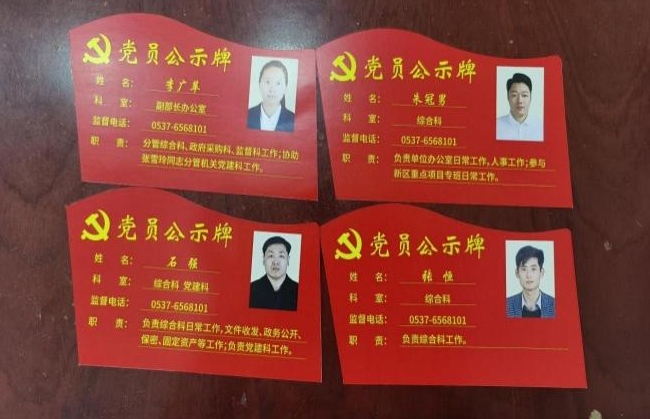 党员公示牌
姓 名： 李广苹
科 室： 副部长办公室
监督电话： 0537-6568101
职 责： 分管综合科、政府采购科、监督科工作；协助
张雪玲同志分管机关党建科工作。
党员公示牌
姓 名： 朱冠男
科 室： 综合科
监督电话： 0537-6568101
职 责： 负责单位办公室日常工作，人事工作；参与
新区重点项目专班日常工作。
党员公示牌
姓 名： 石强
科 室： 综合科 党建科
监督电话： 0537-6568101
职 责： 负责综合科日常工作，文件收发、政务公开、
保密、固定资产等工作；负责党建科工作。
党员公示牌
姓 名： 张恒
科 室： 综合科
监督电话： 0537-6568101
职 责： 负责综合科工作。